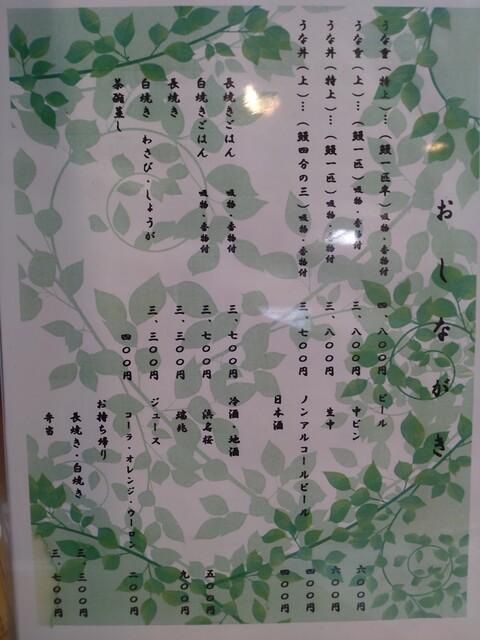 おしながき
うな重（特上）…（鰻一匹半）吸物・香物付 四、八〇〇円
うな重（上）…（鰻一匹）吸物・香物付 三、八〇〇円
うな丼（特上）…（鰻一匹）吸物・香物付 三、八〇〇円
うな丼（上）…（鰻四分の三）吸物・香物付 三、七〇〇円
長焼きごはん 吸物・香物付 三、七〇〇円
白焼きごはん 吸物・香物付 三、七〇〇円
長焼き 三、三〇〇円
白焼き わさび・しょうが 三、三〇〇円
茶碗蒸し 四〇〇円
ビール
中ビン 六〇〇円
生中 六〇〇円
ノンアルコールビール 四〇〇円
日本酒 四〇〇円
冷酒・地酒
浜名桜 五〇〇円
瑞兆 九〇〇円
ジュース
コーラ・オレンジ・ウーロン 二〇〇円
お持ち帰り
長焼き・白焼き 三、三〇〇円
弁当 三、七〇〇円